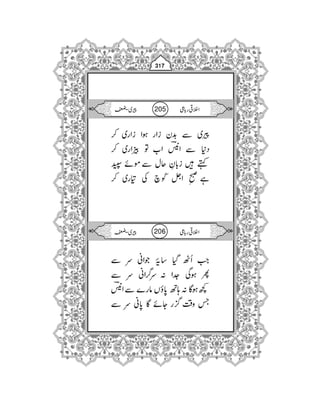 317
اخلاقی رباعی 205 پیری۔ضعف
پیری سے بدن زار ہوا زاری کر
دنیا سے انیسؔ اب تو بیزاری کر
کہتے ہیں زبانِ حال سے موئے سپید
ہے صبحِ اجل کوچ کی تیاری کر
اخلاقی رباعی 206 پیری۔ضعف
جب اُٹھ گیا سایۂ جوانی سر سے
پھر ہوگی جدا نہ سرگرانی سر سے
کچھ ہوگا نہ ہاتھ پاؤں مارے سے انیسؔ
جس وقت گزر جائے گا پانی سر سے